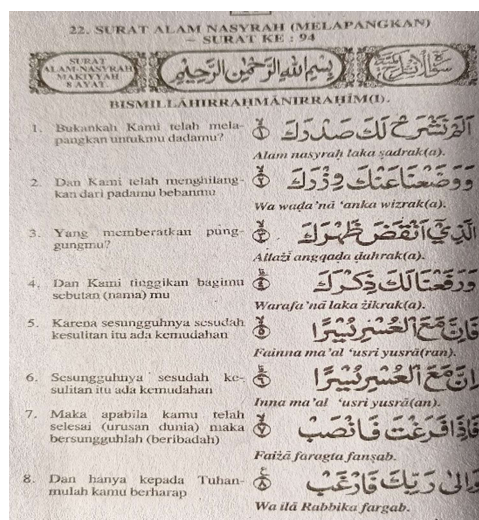 22. SURAT ALAM NASYRAH (MELAPANGKAN)
– SURAT KE : 94
SURAT
ALAM-NASYRAH
MAKIYYAH
8 AYAT
بِسْمِ اللهِ الرَّحْمٰنِ الرَّحِيْمِ
BISMILLÂHIRRAHMÂNIRRAHÎM(I).
1. Bukankah Kami telah mela-
pangkan untukmu dadamu?
اَلَمْ نَشْرَحْ لَكَ صَدْرَكَ
Alam nasyraḥ laka ṣadrak(a).
2. Dan Kami telah menghilang-
kan dari padamu bebanmu
وَوَضَعْنَا عَنْكَ وِزْرَكَ
Wa waḍa'nā 'anka wizrak(a).
3. Yang memberatkan pung-
gungmu?
الَّذِيْٓ اَنْقَضَ ظَهْرَكَ
Allażī angqaḍa ḍahrak(a).
4. Dan Kami tinggikan bagimu
sebutan (nama) mu
وَرَفَعْنَا لَكَ ذِكْرَكَ
Warafa'nā laka żikrak(a).
5. Karena sesungguhnya sesudah
kesulitan itu ada kemudahan
فَاِنَّ مَعَ الْعُسْرِ يُسْرًا
Fainna ma'al 'usri yusrā(ran).
6. Sesungguhnya sesudah ke-
sulitan itu ada kemudahan
اِنَّ مَعَ الْعُسْرِ يُسْرًا
Inna ma'al 'usri yusrā(an).
7. Maka apabila kamu telah
selesai (urusan dunia) maka
bersungguhlah (beribadah)
فَاِذَا فَرَغْتَ فَانْصَبْ
Faiżā faragta fanṣab.
8. Dan hanya kepada Tuhan-
mulah kamu berharap
وَاِلٰى رَبِّكَ فَارْغَبْ
Wa ilā Rabbika fargab.